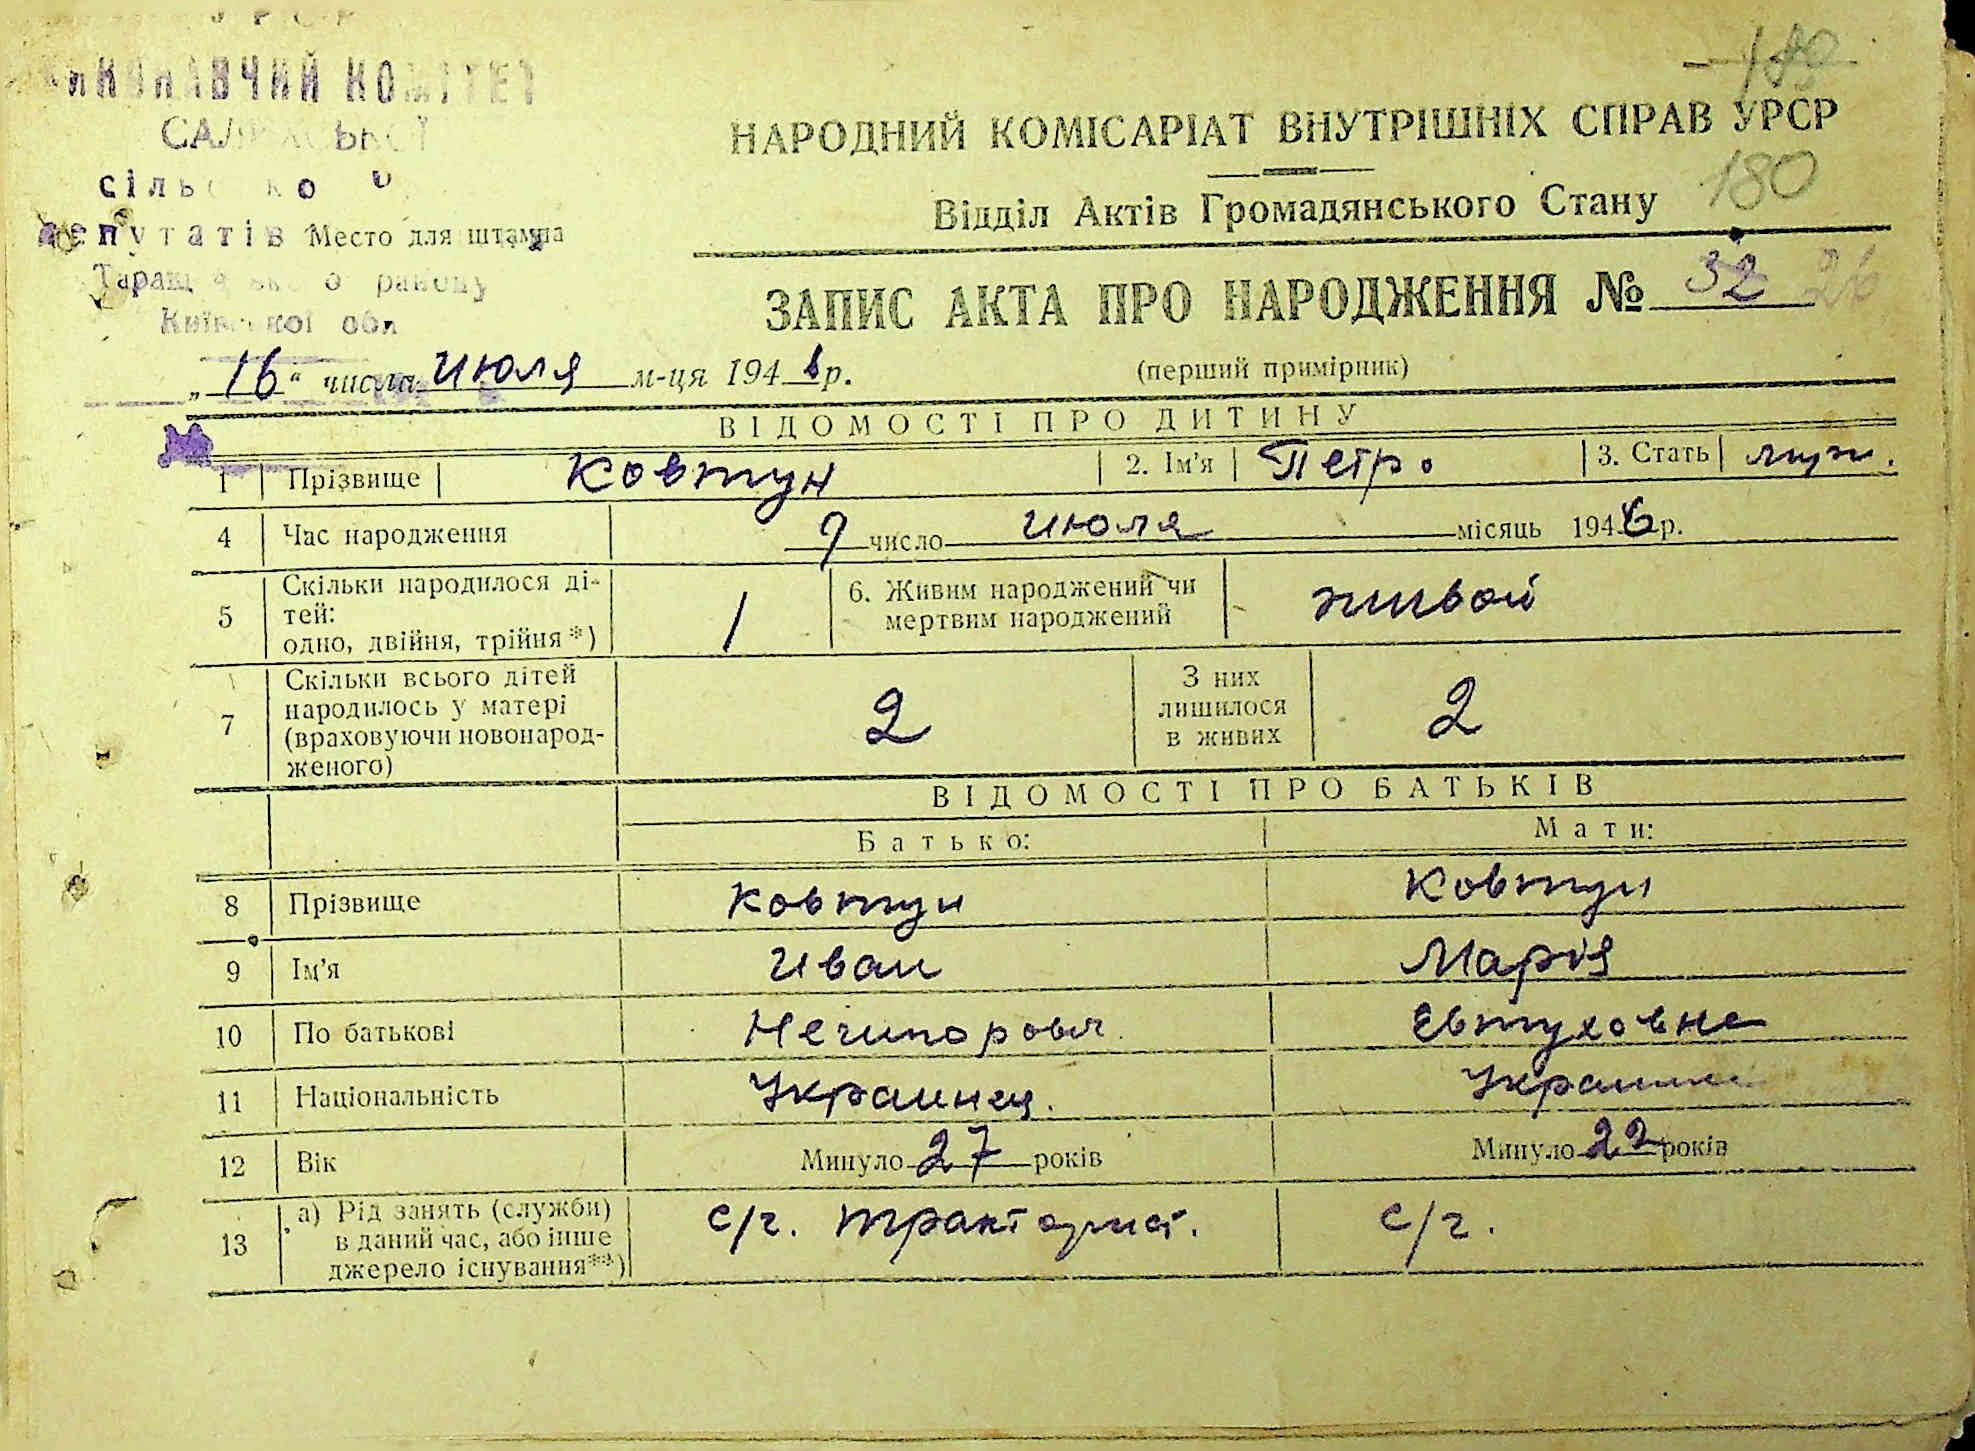 УРСР
ВИКОНАВЧИЙ КОМІТЕТ
депутатів Место для штампа
району
Київської обл
180
НАРОДНИЙ КОМІСАРІАТ ВНУТРІШНІХ СПРАВ УРСР
180
Відділ Актів Громадянського Стану
ЗАПИС АКТА ПРО НАРОДЖЕННЯ № 32 26
„16“ числа июля м-ця 1946 р.
(перший примірник)
ВІДОМОСТІ ПРО ДИТИНУ
1 Прізвище Ковтун 2. Ім'я Петро 3. Стать муж.
4 Час народження 9 число июля місяць 1946 р.
5 Скільки народилося ді-
тей:
одно, двійня, трійня*) 1
6. Живим народжений чи
мертвим народжений живой
7 Скільки всього дітей
народилось у матері
(враховуючи новонарод-
женого) 2
З них
лишилося
в живих 2
ВІДОМОСТІ ПРО БАТЬКІВ
Батько: Мати:
8 Прізвище Ковтун Ковтун
9 Ім'я Иван Марія
10 По батькові Нечипорович Евтуховна
11 Національність Украинец. Украинка
12 Вік Минуло 27 років Минуло 22 років
13 а) Рід занять (служби)
в даний час, або інше
джерело існування**)
с/г. тракторист. с/г.